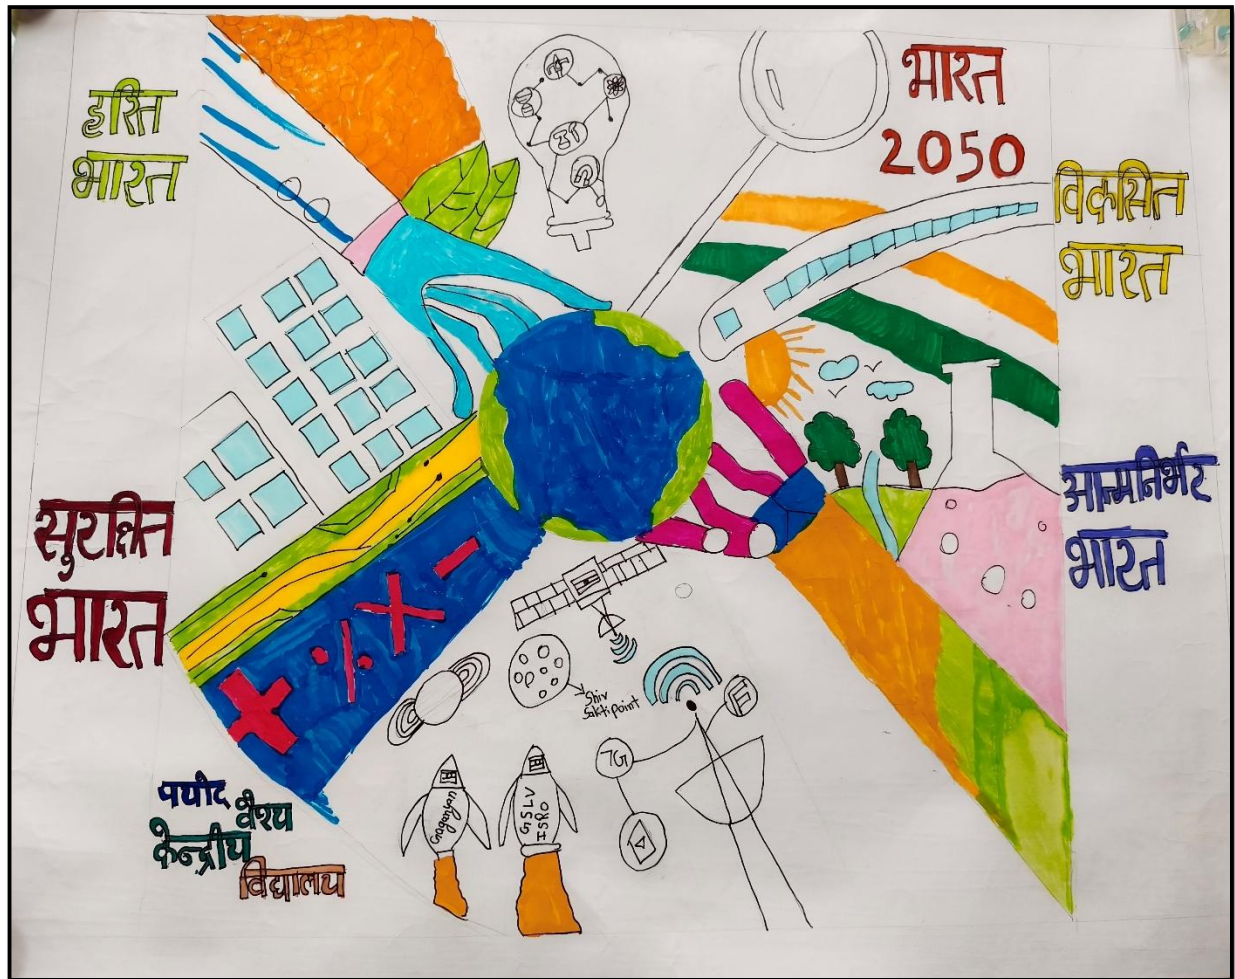 हरित
भारत
भारत
2050
विकसित
भारत
आत्मनिर्भर
भारत
सुरक्षित
भारत
Shiv
Sakti point
7G
Gaganyan
GSLV
ISRO
वैश्य
केन्द्रीय
विद्यालय